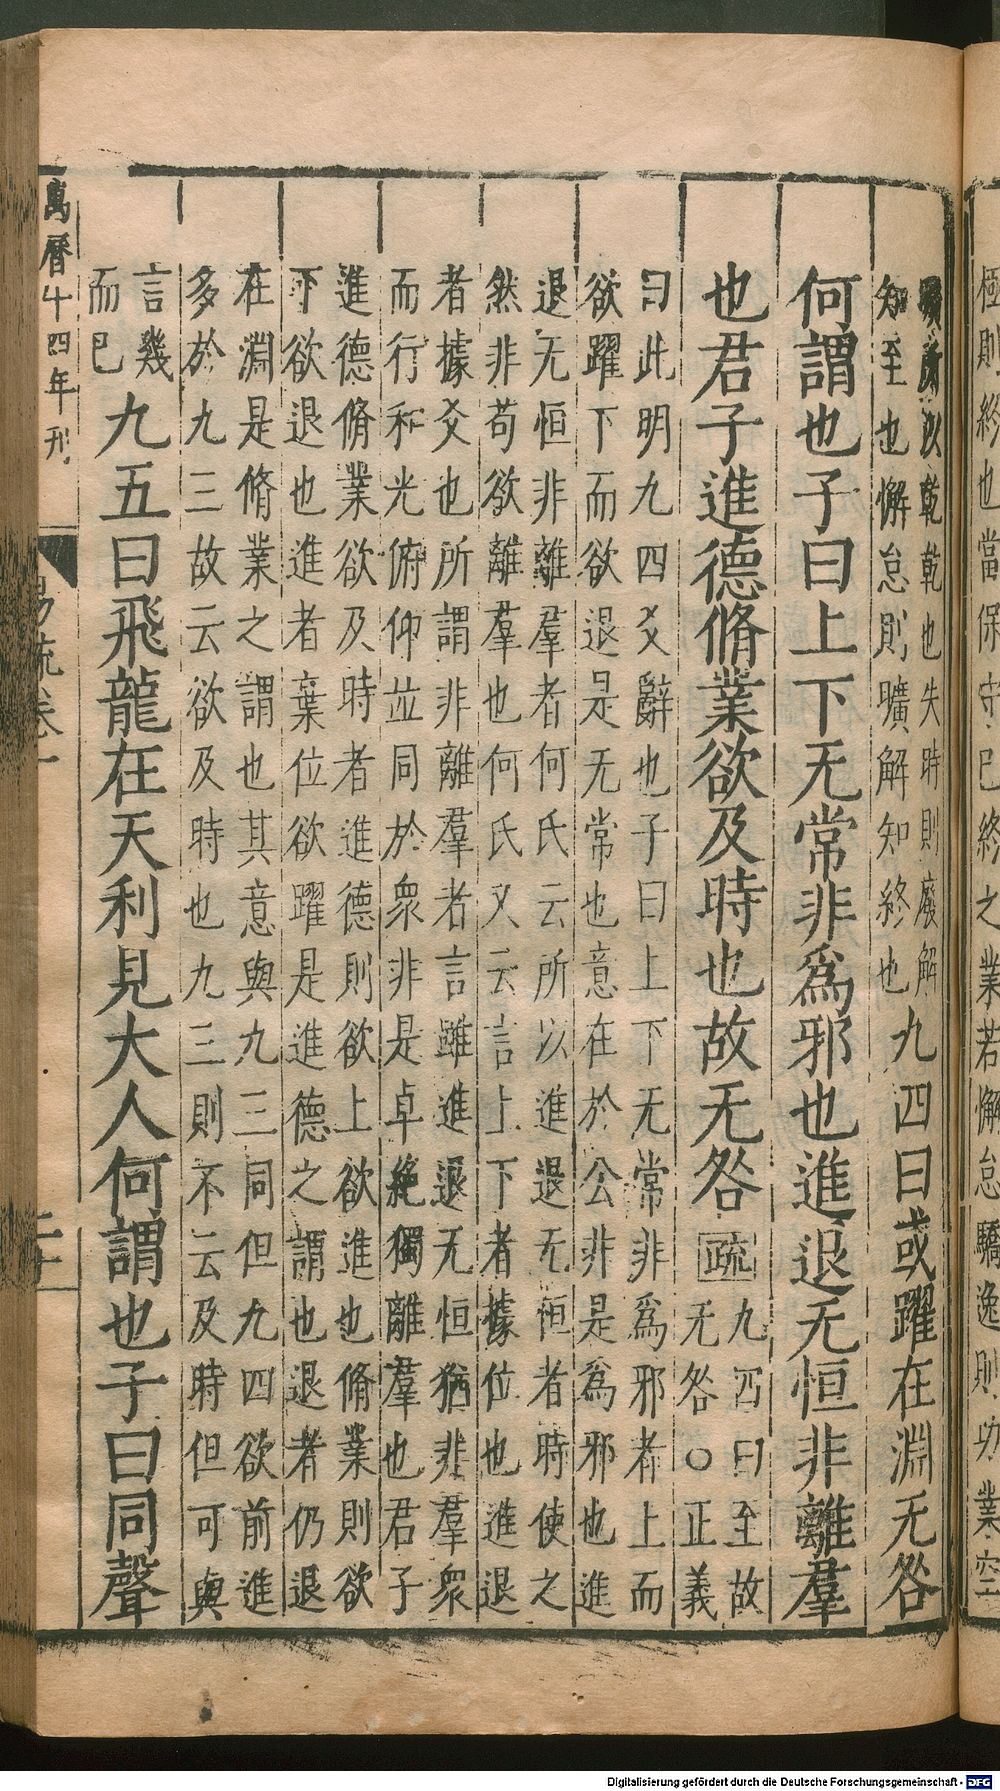 極則終也當保守已終之業若懈怠驕逸則功業空
所以乾乾也失時則廢解
知至也懈怠則曠解知終也九四曰或躍在淵无咎
何謂也子曰上下无常非爲邪也進退无恒非離羣
也君子進德脩業欲及時也故无咎疏九四曰至故
无咎○正義
曰此明九四爻辭也子曰上下无常非爲邪者上而
欲躍下而欲退是无常也意在於公非是爲邪也進
退无恒非離羣者何氏云所以進退无恒者時使之
然非苟欲離羣也何氏又云言上下者據位也進退
者據爻也所謂非離羣者言雖進退无恒猶非羣衆
而行和光俯仰並同於衆非是卓絶獨離羣也君子
進德脩業欲及時者進德則欲上欲進也脩業則欲
下欲退也進者棄位欲躍是進德之謂也退者仍退
在淵是脩業之謂也其意與九三同但九四欲前進
多於九三故云欲及時也九三則不云及時但可與
言幾
而已九五曰飛龍在天利見大人何謂也子曰同聲
萬曆十四年刊
易疏卷一
二十
Digitalisierung gefördert durch die Deutsche Forschungsgemeinschaft - DFG